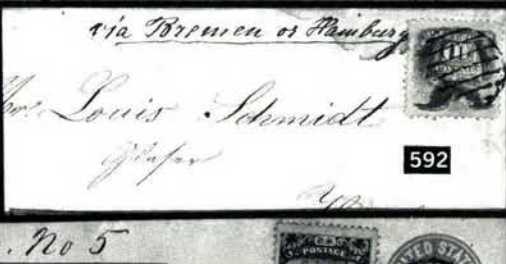 via Bremen or Hamburg
10
POSTAGE
Louis Schmidt
592
. No 5
POSTAGE
UNITED STA